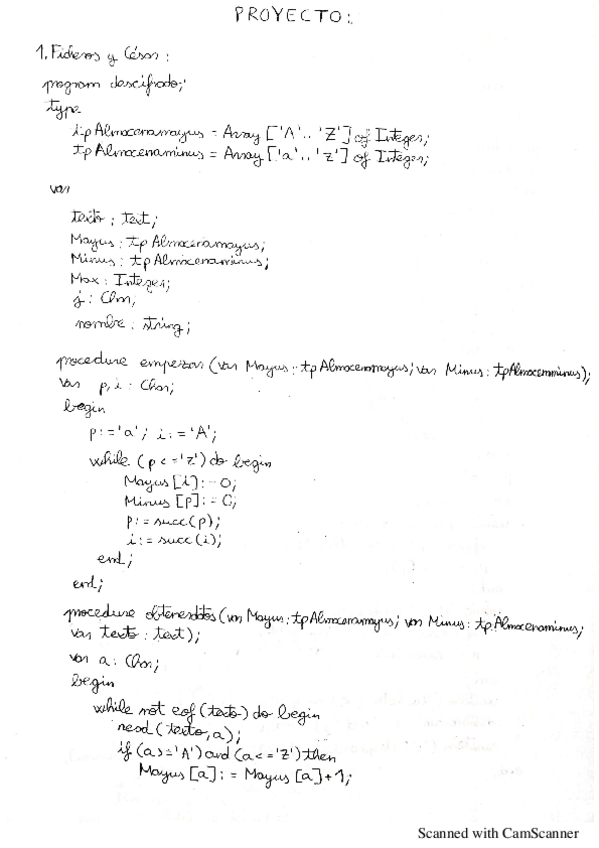 PROYECTO:
1. Ficheros y César:
program descifrado;
type
tpAlmacenamayus = Array ['A'..'Z'] of Integer;
tpAlmacenaminus = Array ['a'..'z'] of Integer;
var
texto : text;
Mayus : tpAlmacenamayus;
Minus : tpAlmacenaminus;
Max : Integer;
j : Char;
nombre : string;
procedure empezar (var Mayus : tpAlmacenamayus; var Minus : tpAlmacenaminus);
var p,i : Char;
begin
p:='a'; i:='A';
while (p<='z') do begin
Mayus [i]:=0;
Minus [p]:=0;
p:=succ(p);
i:=succ(i);
end;
end;
procedure obtenerdatos (var Mayus : tpAlmacenamayus; var Minus : tpAlmacenaminus;
var texto : text);
var a : Char;
begin
while not eof (texto) do begin
read (texto, a);
if (a>='A') and (a<='Z') then
Mayus [a] := Mayus [a]+1;
Scanned with CamScanner